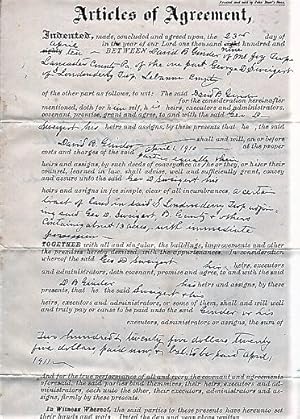 Printed and sold by
Articles of Agreement,
Indented, made, concluded and agreed upon, the 23rd day
April in the year of our Lord one thousand eight hundred and
BETWEEN David B Ginder of Mt Joy Twp
Lancaster County Pa of the one part George D Swigert
of Londonderry Twp Lebanon County
of the other part as follows, to wit: The said David B Ginder
for the consideration hereinafter
mentioned, doth for himself, his heirs, executors and administrators,
covenant, promise, grant and agree, to and with the said Geo D
Swigert his heirs and assigns, by these presents that he, the said
David B. Ginder shall and will, on or before
the April 1, 1910 at the proper
costs and charges of the said
heirs and assigns, by such deeds of conveyance as he or they, or his or their
counsel, learned in law, shall advise, well and sufficiently grant, convey
and assure unto the said Geo D Swigert his
heirs and assigns in fee simple, clear of all incumbrances, a certain
tract of land in said S Londonderry Twp
and Geo D. Swigert, B. & others
Containing about 13 acres, with immediate
possession
TOGETHER with all and singular, the buildings, improvements and other
the premises hereby demised, with the appurtenances. In consideration
whereof the said Geo D Swigert his heirs, executors
and administrators, doth covenant, promise and agree, to and with the said
D B Ginder his heirs and assigns, by these
presents, that he the said Swigert & his
heirs, executors and administrators, or some of them, shall and will well
and truly pay or cause to be paid unto the said Ginder or his
executors, administrators or assigns, the sum of
Two hundred & twenty five dollars twenty
five dollars paid now & bal to be paid april
1911.
And for the true performance of all and every the covenant and agreements
aforesaid, the said parties bind themselves, their heirs, executors and ad-
ministrators, each unto the other, their executors, administrators and as-
signs, firmly by these presents.
In Witness Whereof, the said parties to these presents have hereunto set
their hands and seals. Dated the day and year above written